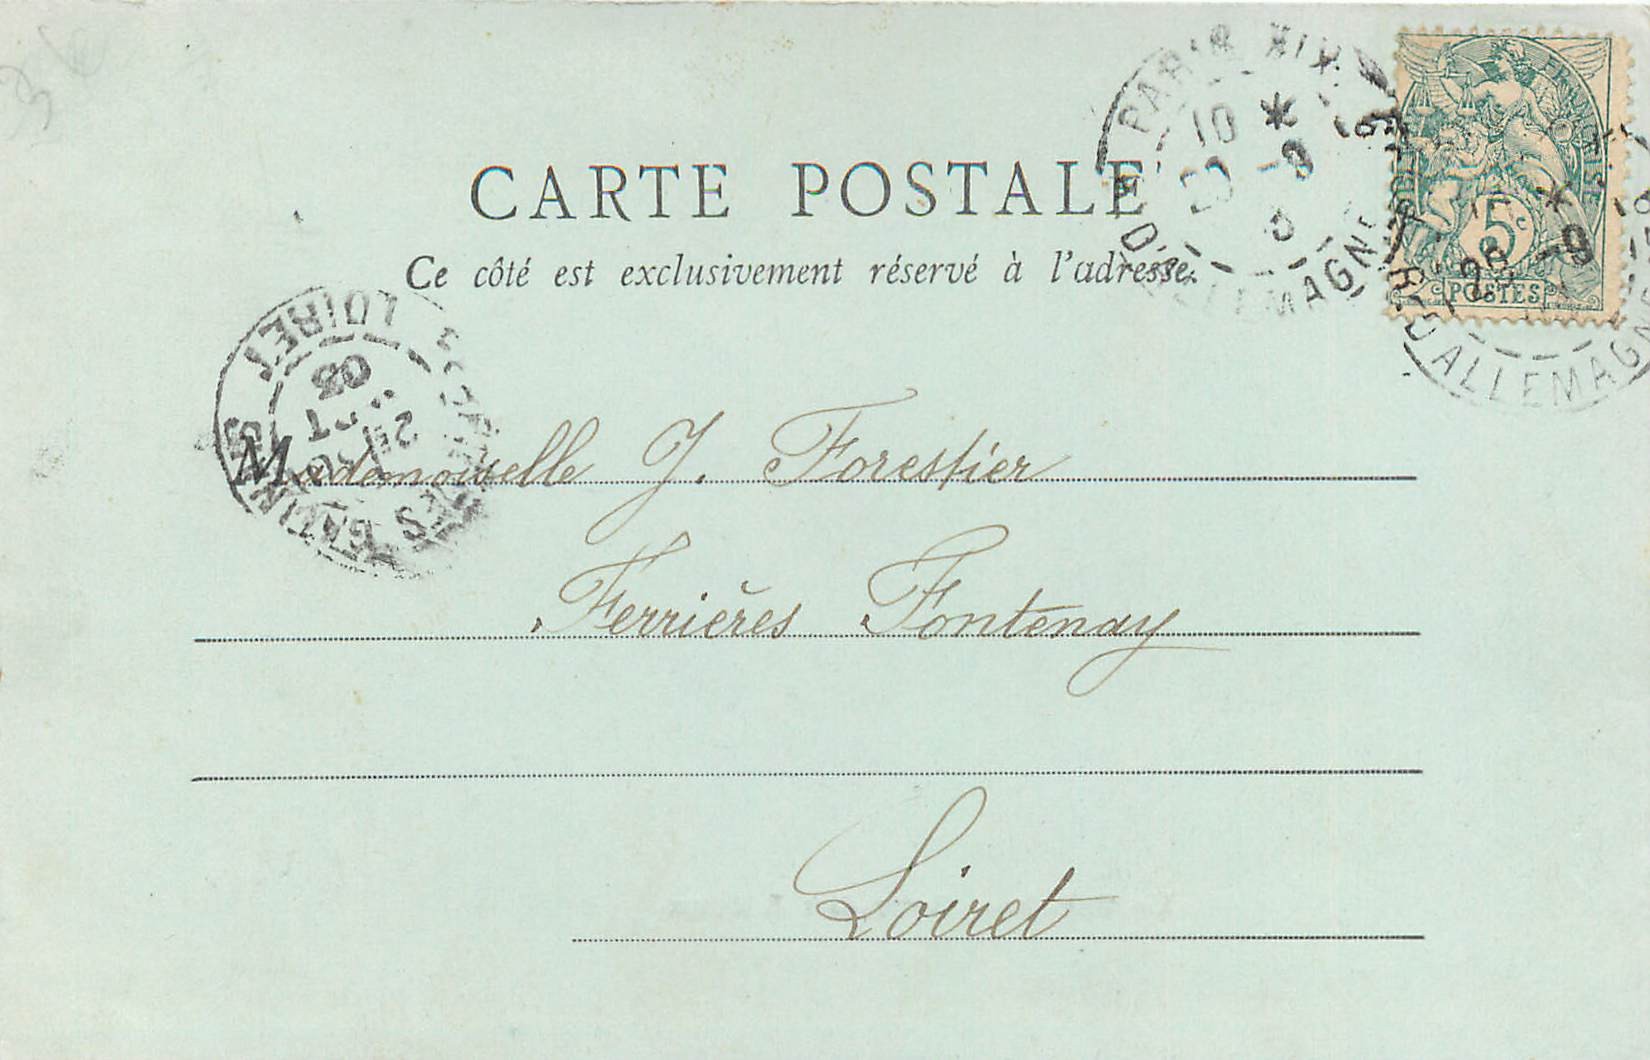 3 €
PARIS XIX
10 *
-9
R. D'ALLEMAGNE
FRANÇAISE
5c
POSTES
* 
-9
R. D'ALLEMAGNE
CARTE POSTALE
Ce côté est exclusivement réservé à l'adresse.
LOIRET
03
25
Mademoiselle J. Forestier
Ferrières Fontenay
Loiret